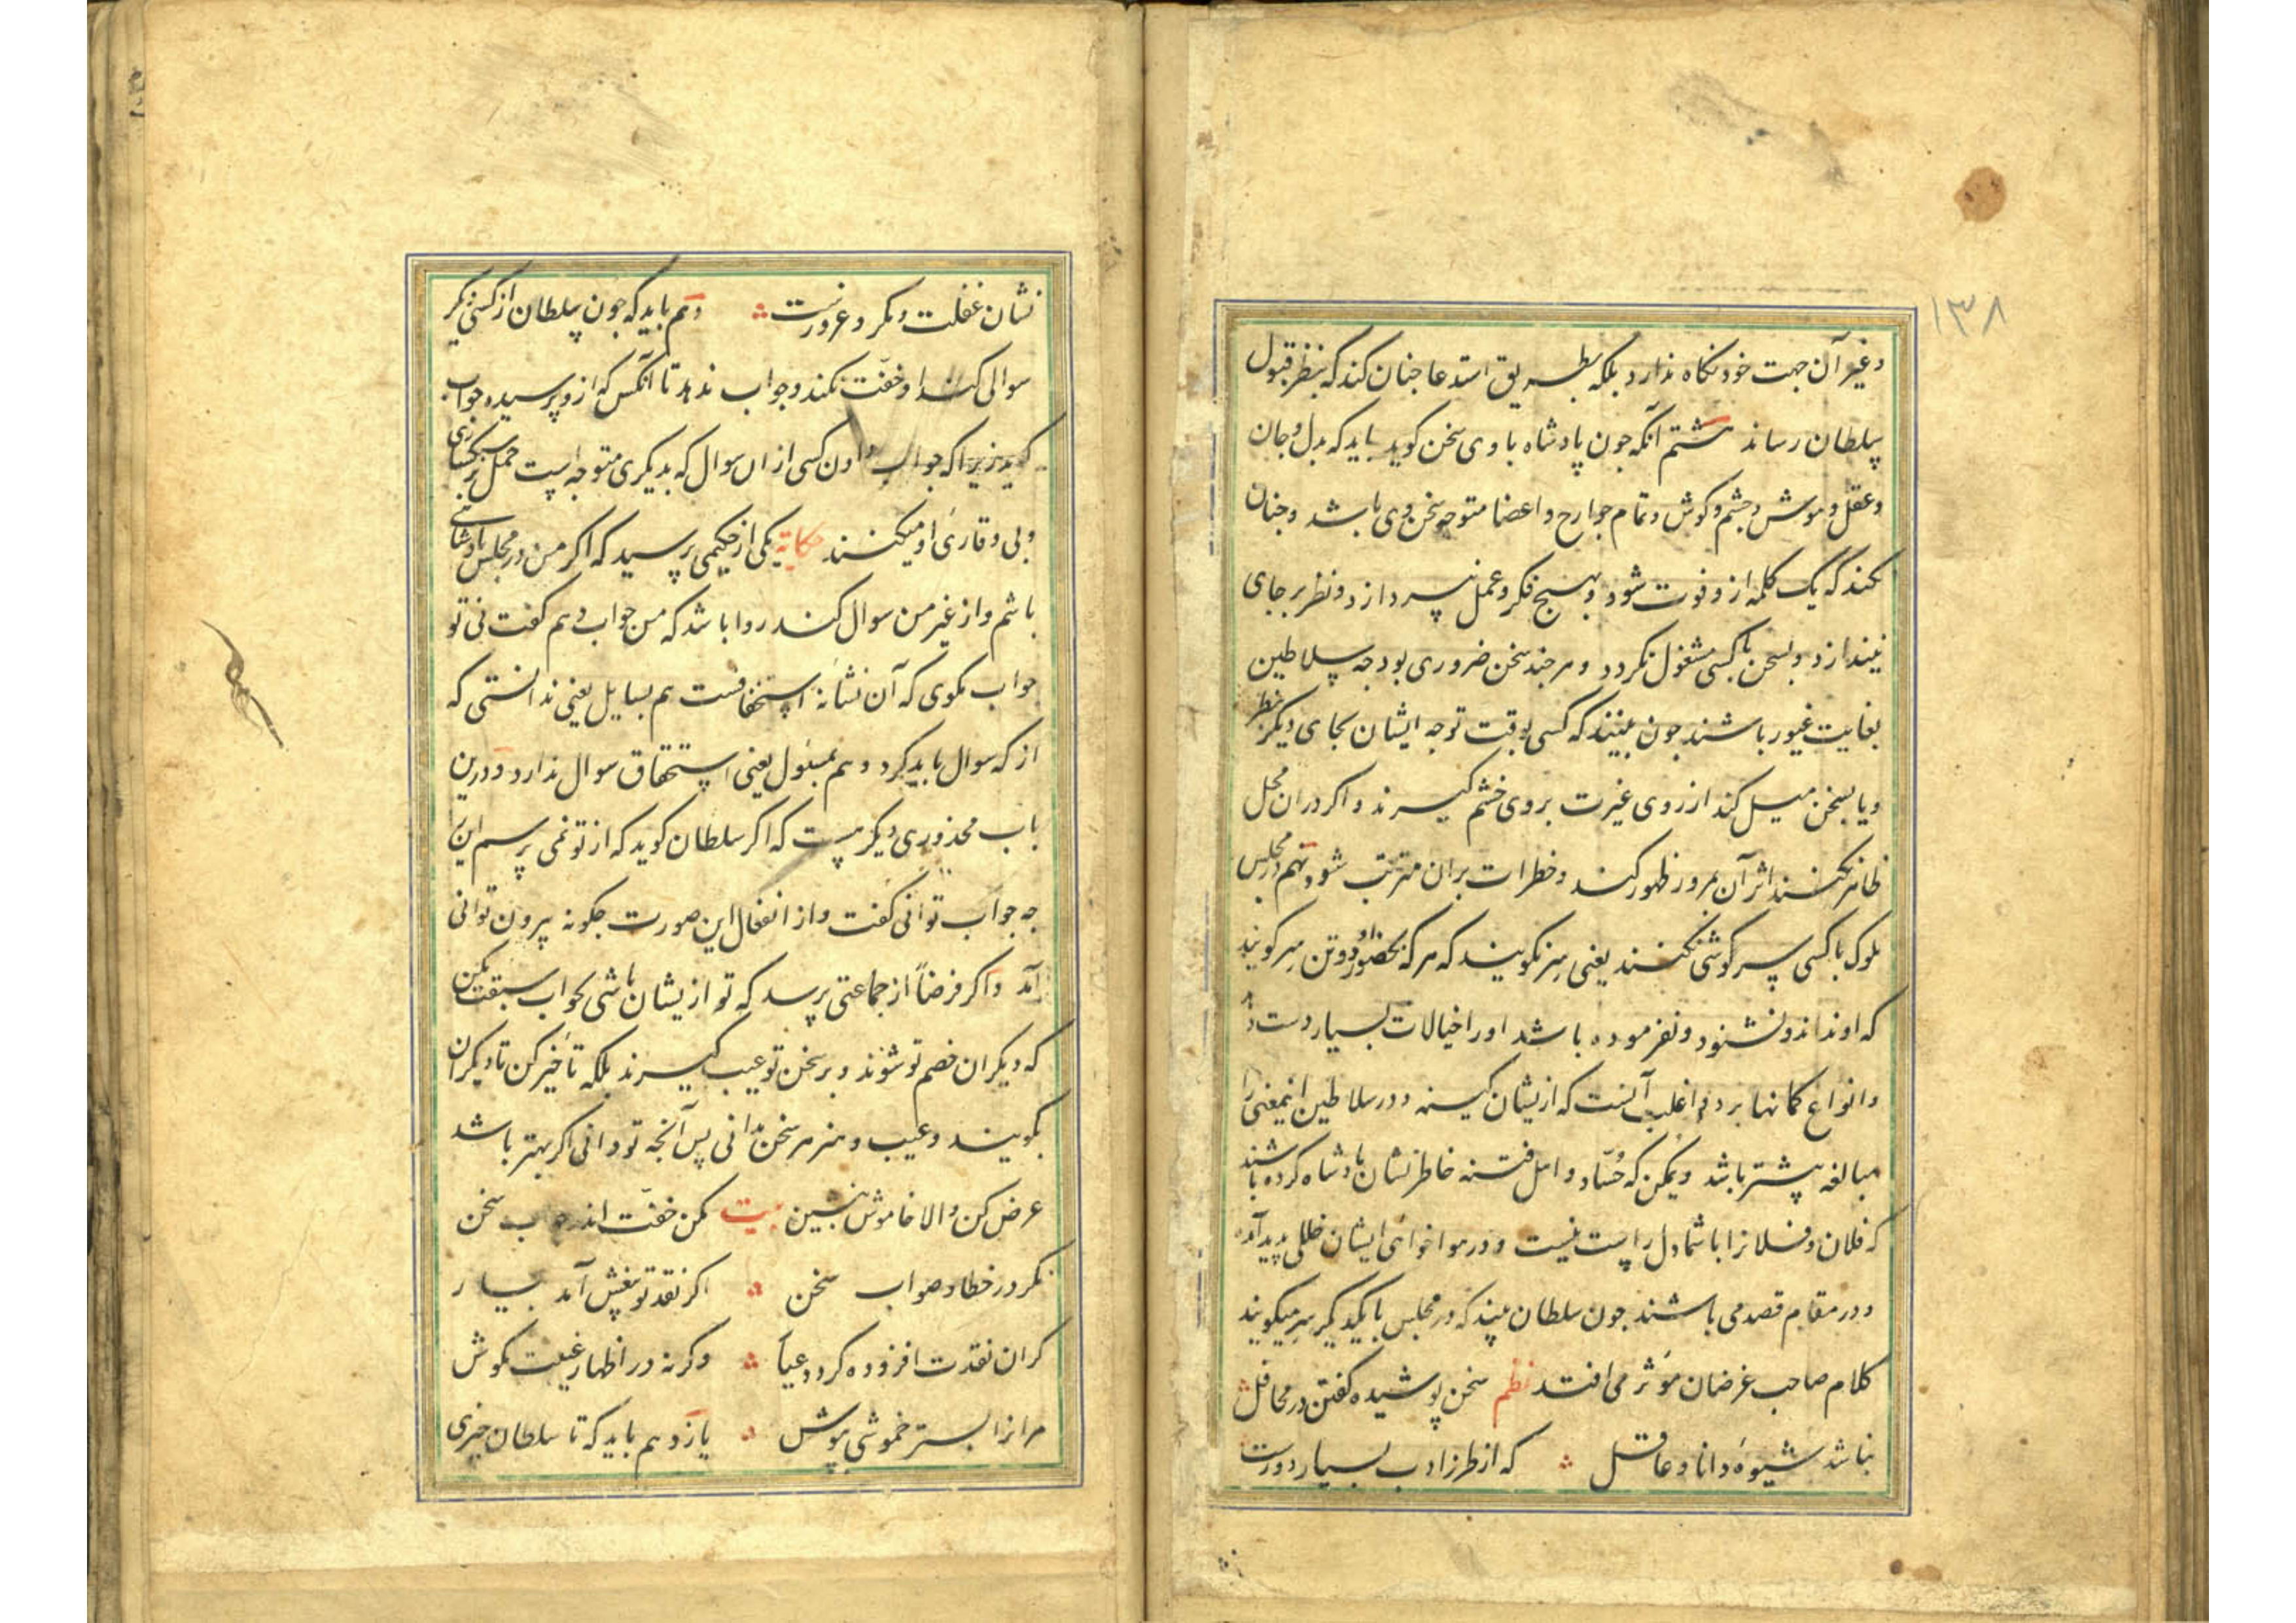 ۱۳۸
وغیر آن جهت خود نکاه ندارد بلکه بطریق استدعا جنان کند که بنظر قبول
سلطان رساند هشتم آنکه جون پادشاه با وی سخن کوید باید که بدل وجان
وعقل وهوش وجشم وکوش وتمام جوارح واعضا متوجه سخن وی باشد وجنان
نکند که یک کلمه ازو فوت شود وبهیج فکر وعمل نپردازد ونظر بر جای
نیندازد وبسخن با کسی مشغول نکردد وهر جند سخن ضروری بود جه سلاطین
بغایت غیور باشند جون بینند که کسی بوقت توجه ایشان بجای دیکر نظر
ویا بسخن میل کند از روی غیرت بر وی خشم کیرند واکر دران محل
ظاهر نکنند اثر آن بمرور ظهور کند وخطرات بران مترتب شود نهم در مجلس
ملوک با کسی سرکوشی نکنند یعنی سِر نکویند که هر که بحضور او دو تن سِر کویند
که او نداند ونشنود ونفرموده باشد او را خیالات بسیار دست دهد
وانواع کمانها برد واغلب آنست که ازیشان کینه ودر سلاطین اینمعنی را
مبالغه بیشتر باشد ویمکن که حسّاد واهل فتنه خاطرنشان پادشاه کرده باشند
که فلان وفلانرا با شما دل راست نیست ودر هواخواهی ایشان خللی پدید آمده
ودر مقام قصد می باشند جون سلطان بیند که در مجلس با یکدیکر سِر میکویند
کلام صاحب غرضان مؤثر می افتد نظم سخن پوشیده کفتن در محافل
نباشد شیوهٔ دانا وعاقل که از طرز ادب بسیار دورست
نشان غفلت ومکر وغرورست دهم باید که جون سلطان از کسی دیکر
سوالی کند او خفّت نکند وجواب ندهد تا آنکس که ازو پرسیده جواب
کوید زیرا که جواب دادن کسی ازان سوال که بدیکری متوجه است حمل بر سبکساری
وبی وقارئ او میکنند حکایة یکی از حکیمی پرسید که اکر من در مجلس پادشاهی
باشم واز غیر من سوال کند روا باشد که من جواب دهم کفت نی تو
جواب مکوی که آن نشانهٔ استخفافست هم بسایل یعنی ندانستی که
از که سوال باید کرد وهم بمسئول یعنی استحقاق سوال ندارد ودرین
باب محذوری دیکر هست که اکر سلطان کوید که از تو نمی پرسم این را
جه جواب توانی کفت واز انفعال این صورت جکونه بیرون توانی
آمد واکر فرضاً از جماعتی پرسد که تو ازیشان باشی بجواب سبقت مکن
که دیکران خصم تو شوند وبر سخن تو عیب کیرند بلکه تأخیر کن تا دیکران
بکویند وعیب وهنر هر سخن بدانی پس آنجه تو دانی اکر بهتر باشد
عرض کن والا خاموش بنشین بیت مکن خفّت اندر جواب سخن
نکر در خطا وصواب سخن اکر نقد تو بیغش آمد بیار
کزان نقدت افزوده کردد عیار وکرنه در اظهار عیبت مکوش
مرانرا بستر خموشی بپوش یازدهم باید که تا سلطان جیزی